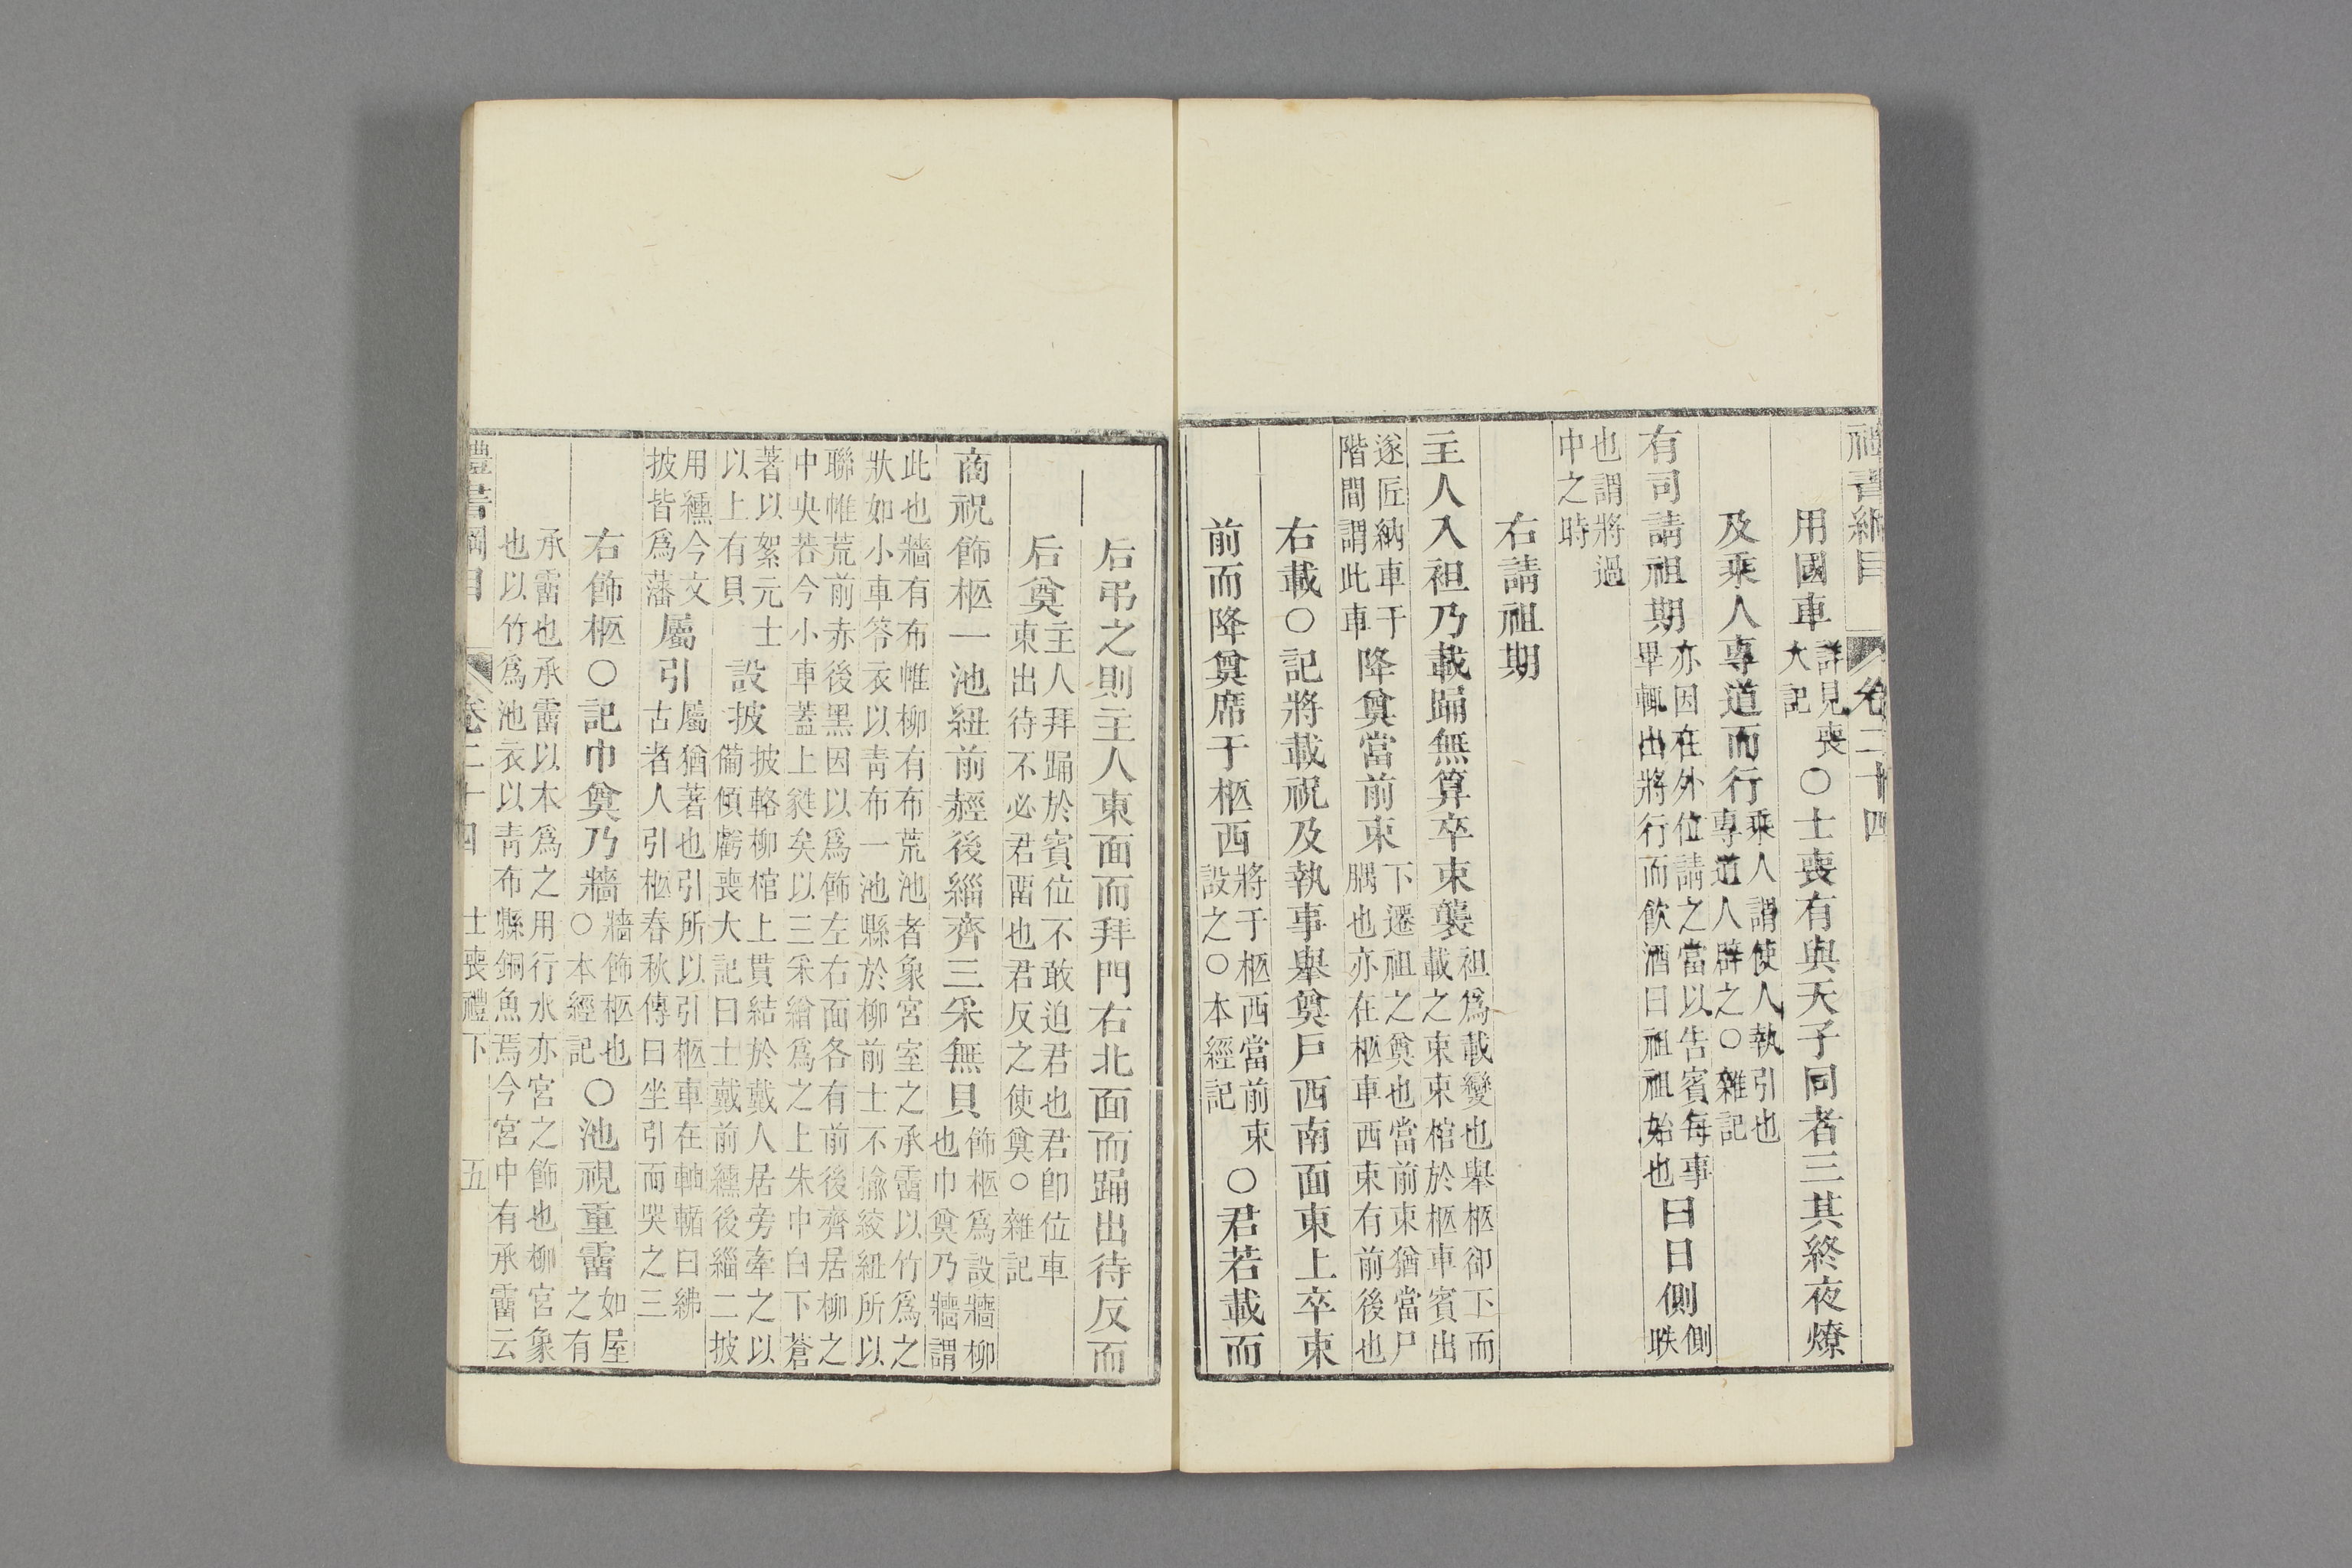 禮書綱目 卷二十四
用國車詳見喪大記○士喪有與天子同者三其終夜燎
及乘人專道而行乘人謂使人執引也專道人辟之○雜記
有司請祖期亦因在外位請之當以告賓每事畢輒出將行而飲酒曰祖祖始也曰日側側昳
也謂將過中之時
右請祖期
主人入袒乃載踊無算卒束襲袒爲載變也舉柩卻下而載之束束棺於柩車賓出
遂匠納車于階間謂此車降奠當前束下遷祖之奠也當前束猶當尸腢也亦在柩車西束有前後也
右載○記將載祝及執事舉奠戶西南面東上卒束
前而降奠席于柩西將于柩西當前束設之○本經記○君若載而
后弔之則主人東面而拜門右北面而踊出待反而
后奠主人拜踊於賓位不敢迫君也君即位車東出待不必君畱也君反之使奠○雜記
商祝飾柩一池紐前䞓後緇齊三采無貝飾柩爲設牆柳也巾奠乃牆謂
此也牆有布帷柳有布荒池者象宮室之承霤以竹爲之狀如小車笭衣以靑布一池縣於柳前士不揄絞紐所以
聯帷荒前赤後黑因以爲飾左右面各有前後齊居柳之中央若今小車蓋上蕤矣以三采繒爲之上朱中白下蒼
著以絮元士以上有貝設披披輅柳棺上貫結於戴人居旁牽之以備傾虧喪大記曰士戴前纁後緇二披
用纁今文披皆爲藩屬引屬猶著也引所以引柩車在軸輴曰紼古者人引柩春秋傳曰坐引而哭之三
右飾柩○記巾奠乃牆牆飾柩也○本經記○池視重霤如屋之有
承霤也承霤以木爲之用行水亦宮之飾也柳宮象也以竹爲池衣以靑布縣銅魚焉今宮中有承霤云
禮書綱目 卷二十四 士喪禮下 五